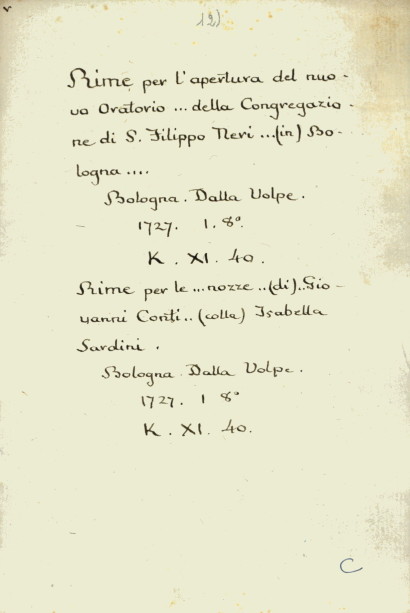 12)
Rime per l'apertura del nuo-
vo Oratorio ... della Congregazio-
ne di S. Filippo Neri ... (in) Bo-
logna ....
Bologna. Dalla Volpe.
1727. 1. 8º.
K. XI. 40.
Rime per le ... nozze .. (di) .. Gio-
vanni Conti .. (colla) Isabella
Sardini.
Bologna. Dalla Volpe.
1727. 1 8º
K. XI. 40.
C